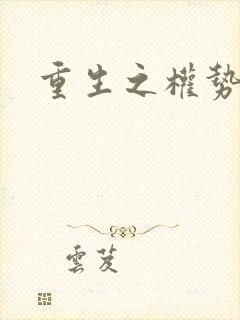 重生之權勢
雲芨